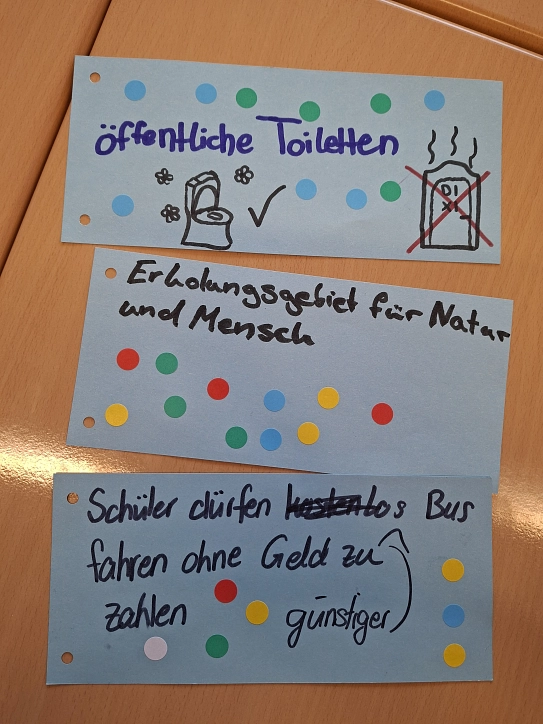 öffentliche Toiletten
DI
XI
Erholungsgebiet für Natur
und Mensch
Schüler dürfen kostenlos Bus
fahren ohne Geld zu
zahlen günstiger